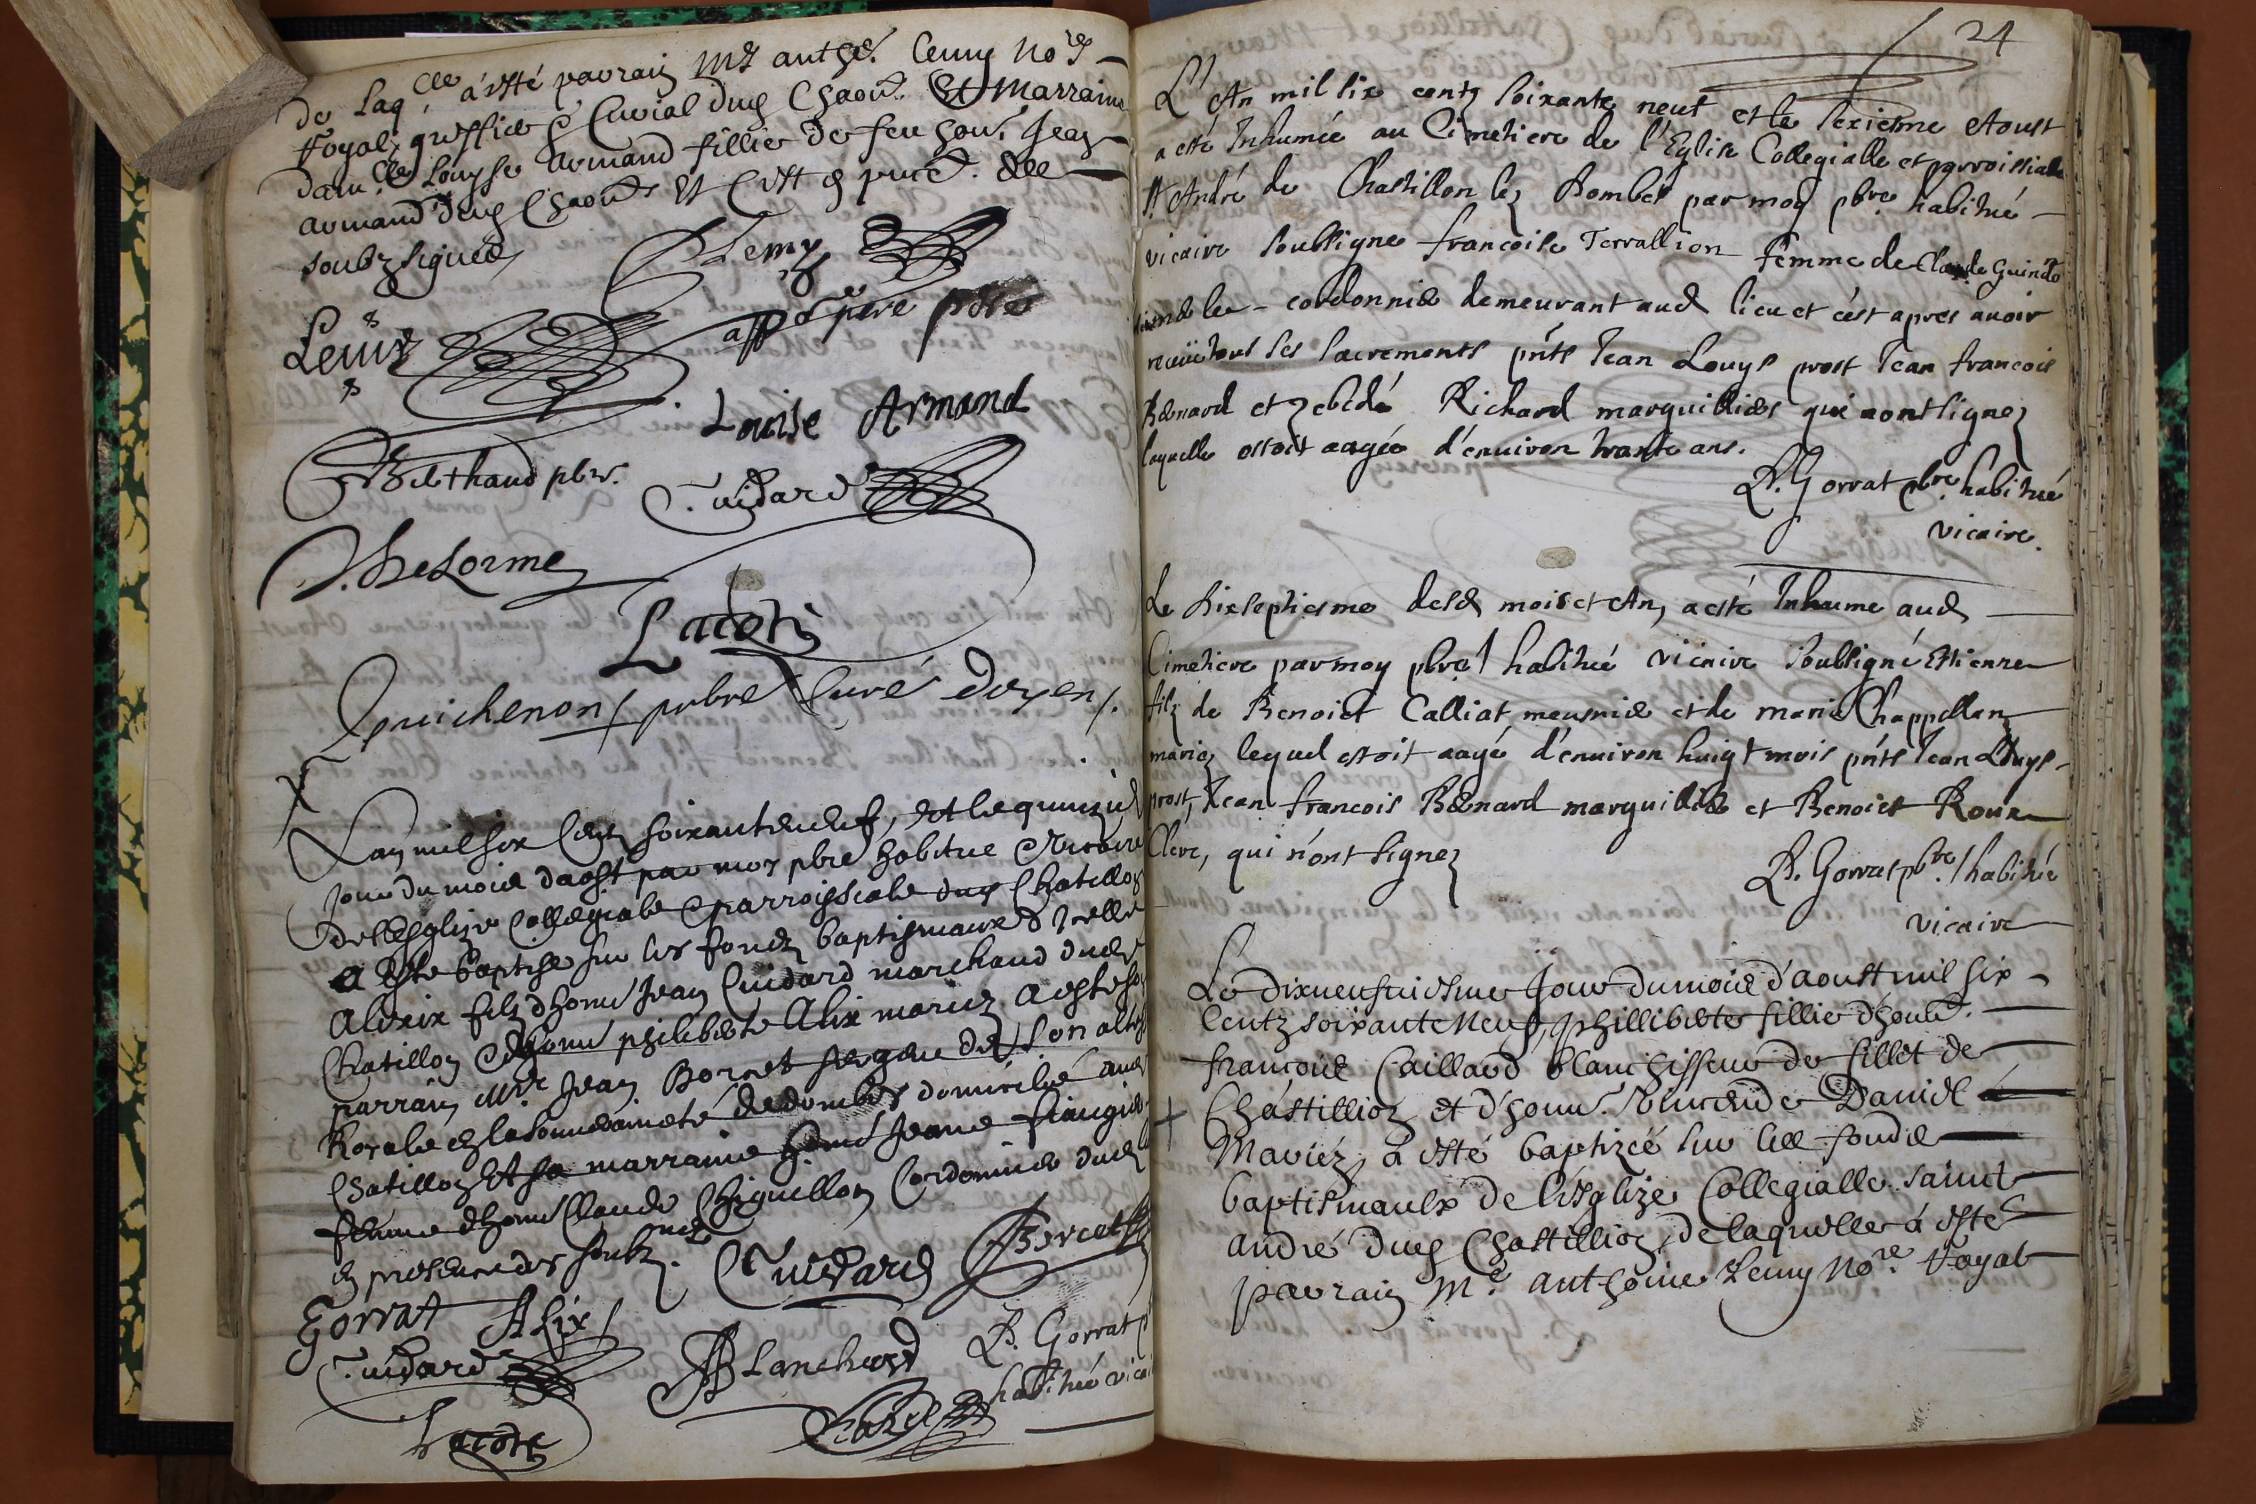 de laq.lle a esté parrain Mr anthe. Lemy no.re
royal greffier Curial dud Chaōn. Et Marraine
dam.lle Louyse armand fillie de feu hon. Jean
armand dud Chaōn Et C'est e pnce. des
soubzsignes
Lemy
Lemy
app Père
Louise Armand
Berthaud pbr.
Cuidard
Delorme
Lacoste
Guichenon pbre Curé doyen
L'an mil six Cent soixante neuf, et le quinzie
jour du mois daost par moy pbre habitue & vicaire
de l'Esglize Collegiale & parroissiale dud Chatillon
a este baptise sur les fondz baptismaux d'Icelle
Alexix filz d'honn Jean Cuidard marchand dud
Chatillon & d'honn philiberte Alix mariez a esté son
parrain Mr. Jean Bornet sergen de son altes
Royale en la souveraineté de dombes domicilié aud
Chatillon Et sa marraine honn Jeane
femme d'honn Claude Chiguellon Cordonnier dud
e presence des soubz.nes
Cuidard
Gorrat Alix
Cuidard
Blanchard
B. Gorrat p
habitué vicai
Lacoste
24
L'An mil six centz soixante neuf et le sexiesme Aoust
a esté Inhumée au Cimetiere de l'Eglise Collegialle et parroissialle
St André de Chastillon lez Dombes par moy pbre habitué
vicaire soubsigne francoise Terrallion femme de Claude Guindo
cordonnier demeurant aud lieu et c'est apres avoir
receü tous ses sacrements pnts Jean Louys prost Jean francois
Bernard et zebedé Richard marguilliers qui nont signez
laquelle estoit aagée d'environ trante ans.
B. Gorrat pbre habitué
vicaire.
Le dixseptiesme desd mois et An, a esté Inhume aud
Cimetiere par moy pbre habitué vicaire soubsigné Estienne
filz de Benoict Calliat meusnier et de marie Chappellan
mariez lequel estoit aagé d'environ huict mois pnts Jean Louys
prost, Jean francois Bernard marguillier et Benoict Roux
Clerc, qui n'ont signez
B. Gorrat pbre habitué
vicaire
Le dixneufviesme Jour du mois d'aoust mil six
Centz soixante Neuf, phillibertte fillie d'honn.
francois Caillard blanchisseur de fillet de
Chastillion et d'honn. Daniel
Mariéz, a esté baptizéé sur les fondz
baptismaulx de l'Esglize Collegialle saint
andré dud Chastillion, de laquelle a esté
parrain Mr. anthoine Lemy No.re Royal